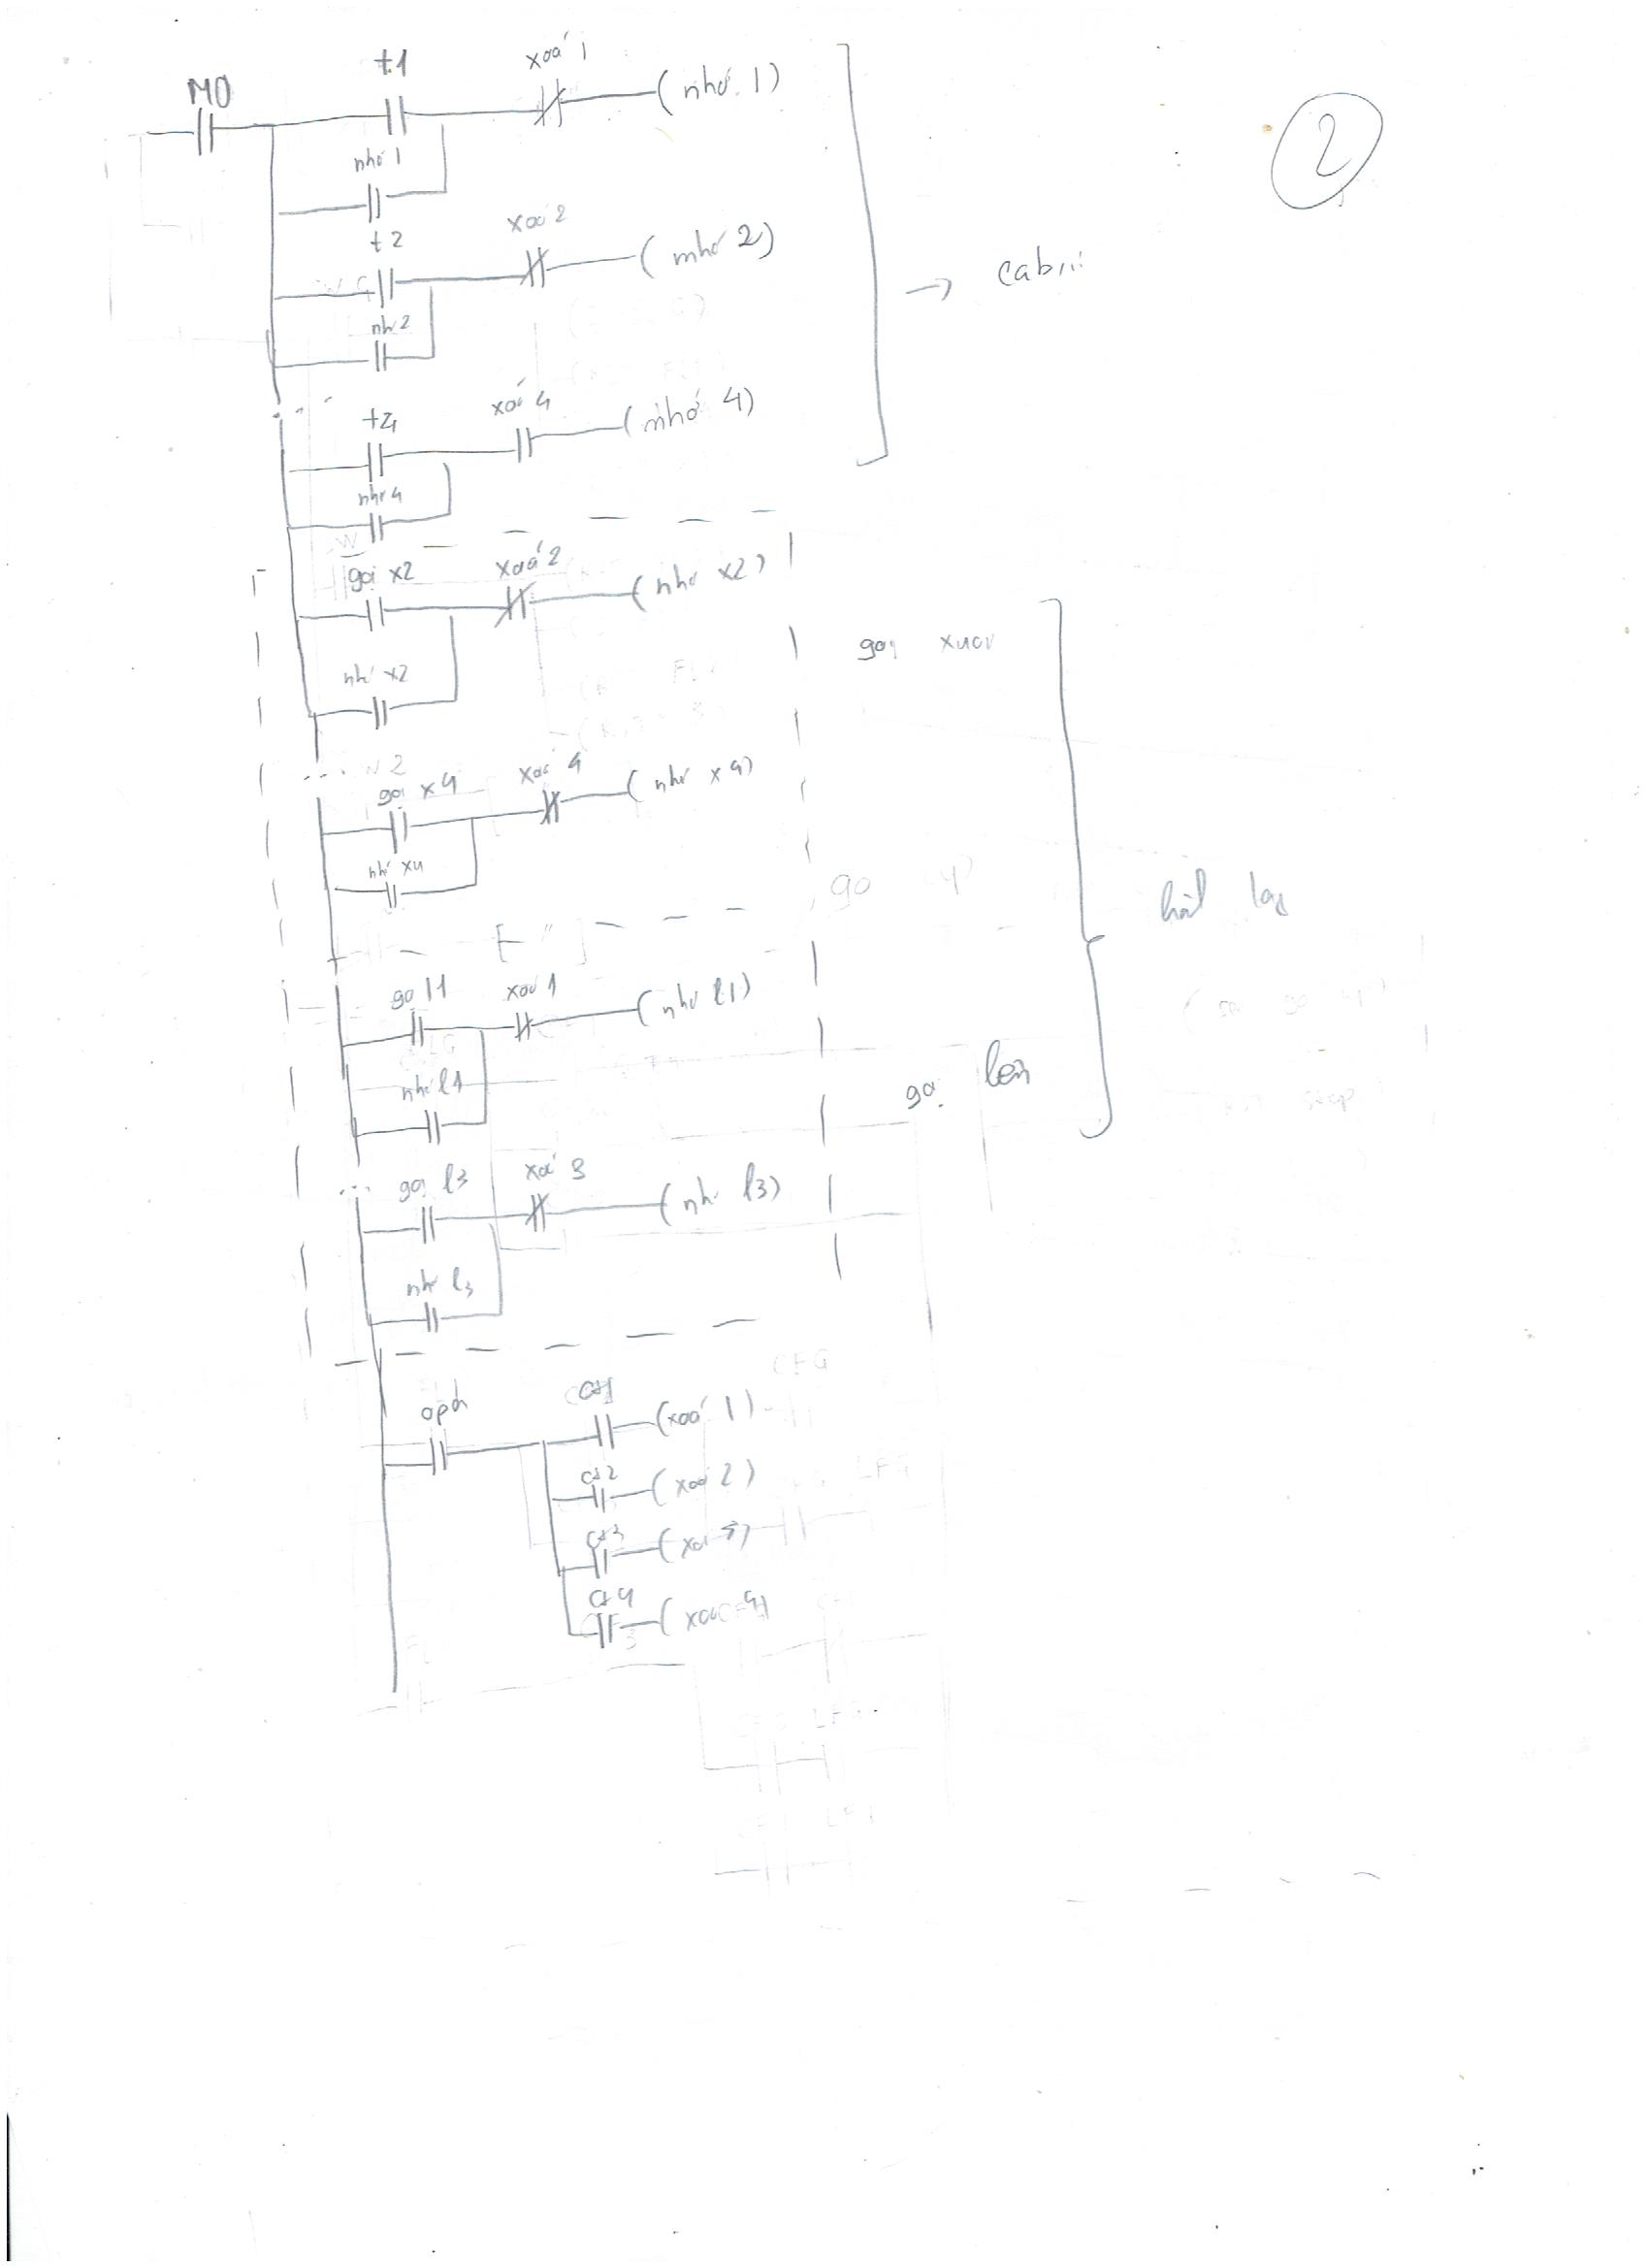 2
M0 t1 xoá 1 (nhớ 1)
nhớ 1
t2 xoá 2 (nhớ 2)
nh 2
→ cabin
t4 xoá 4 (nhớ 4)
nhớ 4
gọi x2 xoá 2 (nhớ x2)
nhớ x2
gọi
gọi x4 xoá 4 (nhớ x4)
nhớ x4
gọi l1 xoá 1 (nhớ l1)
nhớ l1
gọi lên
gọi l3 xoá 3 (nhớ l3)
nhớ l3
ct1 (xoá 1)
ct2 (xoá 2)
ct3
ct4 (xoá 4)